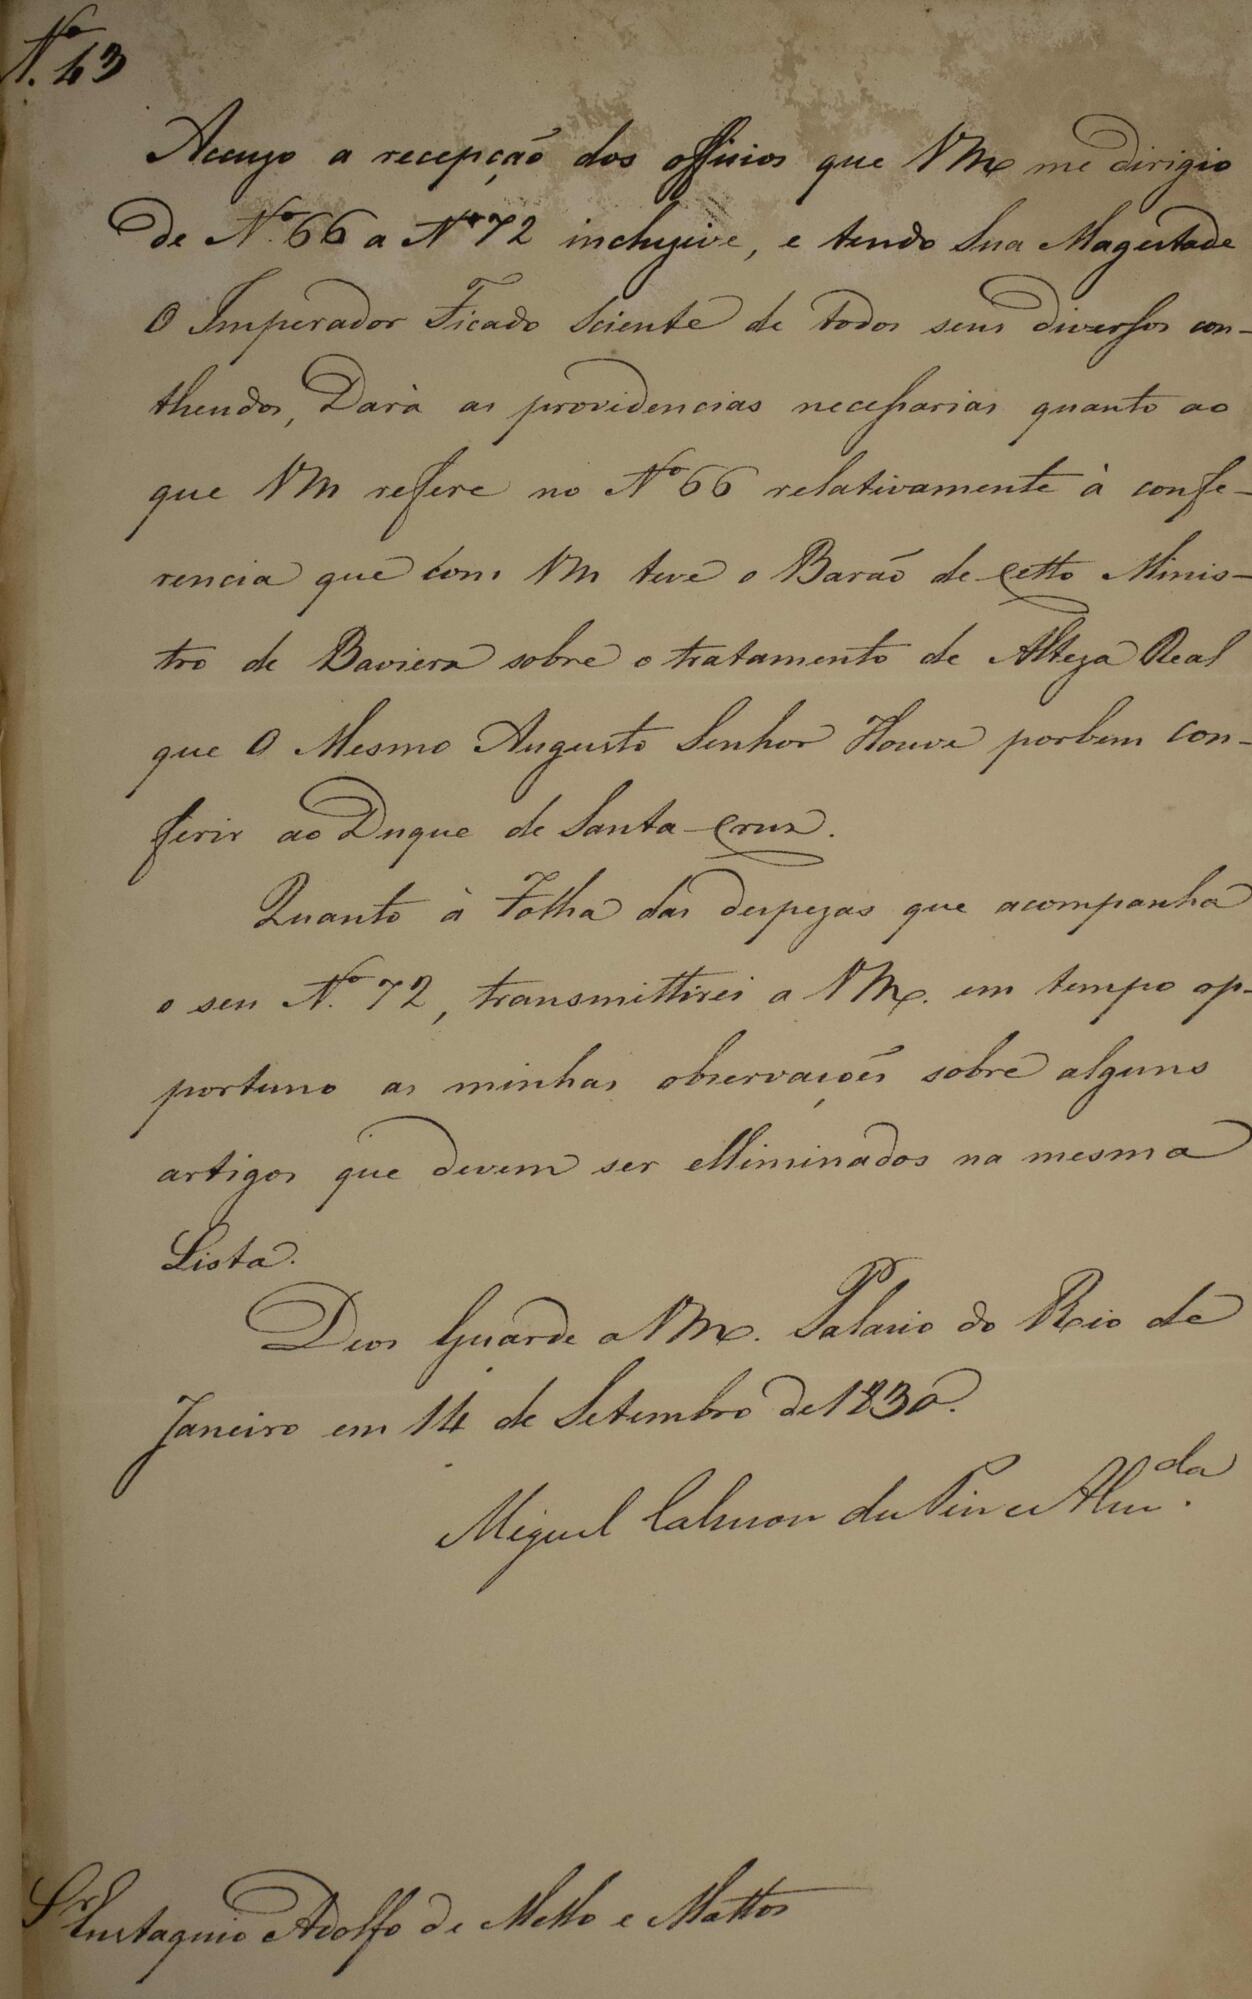 Nº. 43
Accuzo a recepção dos officios que VMce me dirigio
de Nº. 66 a Nº 72 incluzive, e tendo Sua Magestade
O Imperador Ficado Sciente de todos seus diversos con-
theudos, Darà as providencias necessarias quanto ao
que VM refere no Nº 66 relativamente à confe-
rencia que com VM teve o Barão de Cetto Minis-
tro de Baviera sobre o tratamento de Alteza Real
que O Mesmo Augusto Senhor Houve porbem con-
ferir ao Duque de Santa Cruz.
Quanto à Folha das despezas que acompanha
o seu Nº. 72, transmittirei a VMce. em tempo op-
portuno as minhas observações sobre alguns
artigos que devem ser elliminados na mesma
Lista.
Deos Guarde a VMce. Palacio do Rio de
Janeiro em 14 de Setembro de 1830.
Miguel Calmon du Pin e Almda.
Sr Eustaquio Adolfo de Mello e Mattos